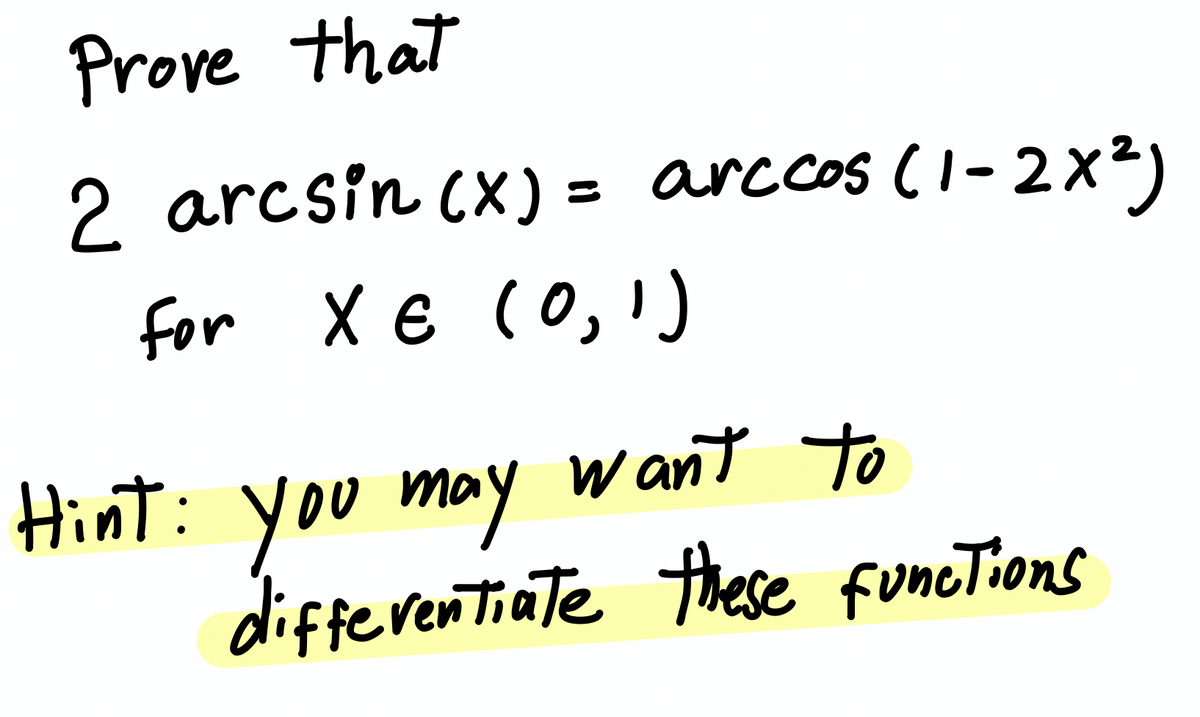 Prove that
2 arcsin (x) = arccos (1-2x²)
for x ∈ (0,1)
Hint: you may want to
differentiate these functions